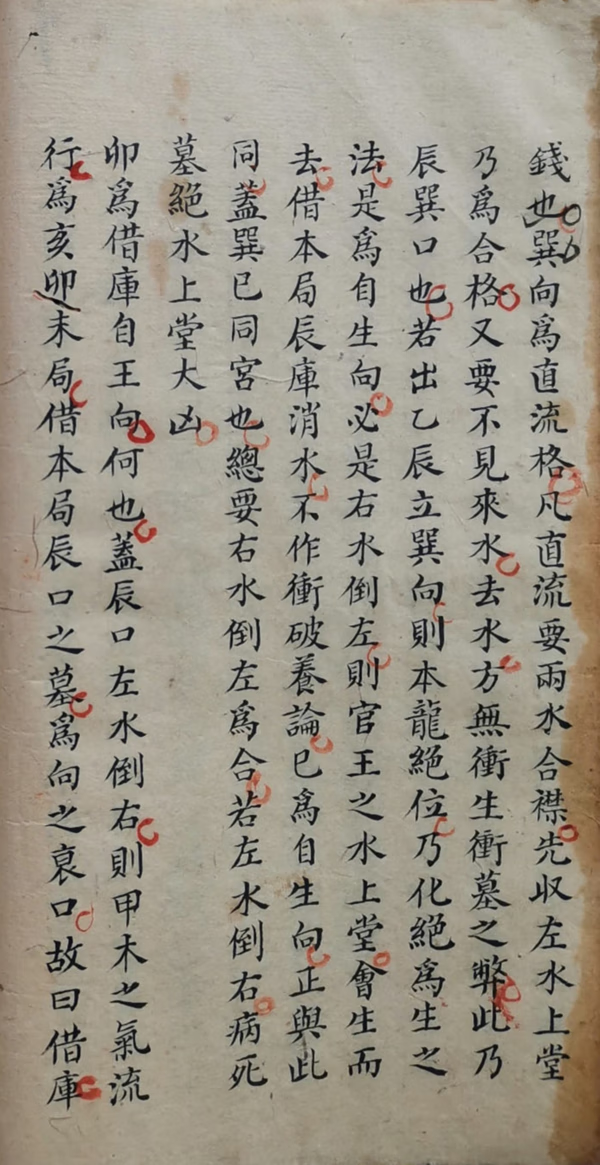 錢也巽向爲直流格凡直流要兩水合襟先收左水上堂
乃爲合格又要不見來水去水方無衝生衝墓之弊此乃
辰巽口也若出乙辰立巽向則本龍絕位乃化絕爲生之
法是爲自生向必是右水倒左則官王之水上堂會生而
去借本局辰庫消水不作衝破養論巳爲自生向正與此
同蓋巽巳同宮也總要右水倒左爲合若左水倒右病死
墓絕水上堂大凶
卯爲借庫自王向何也蓋辰口左水倒右則甲木之氣流
行爲亥卯未局借本局辰口之墓爲向之衰口故曰借庫